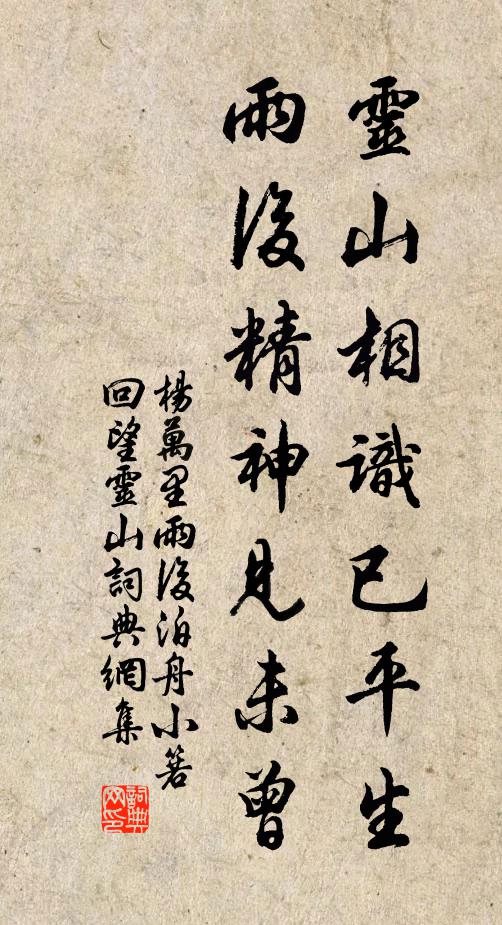 靈山相識已平生
雨後精神見未曾
楊萬里雨後泊舟小箬
回望靈山詞典網集
詞典网印